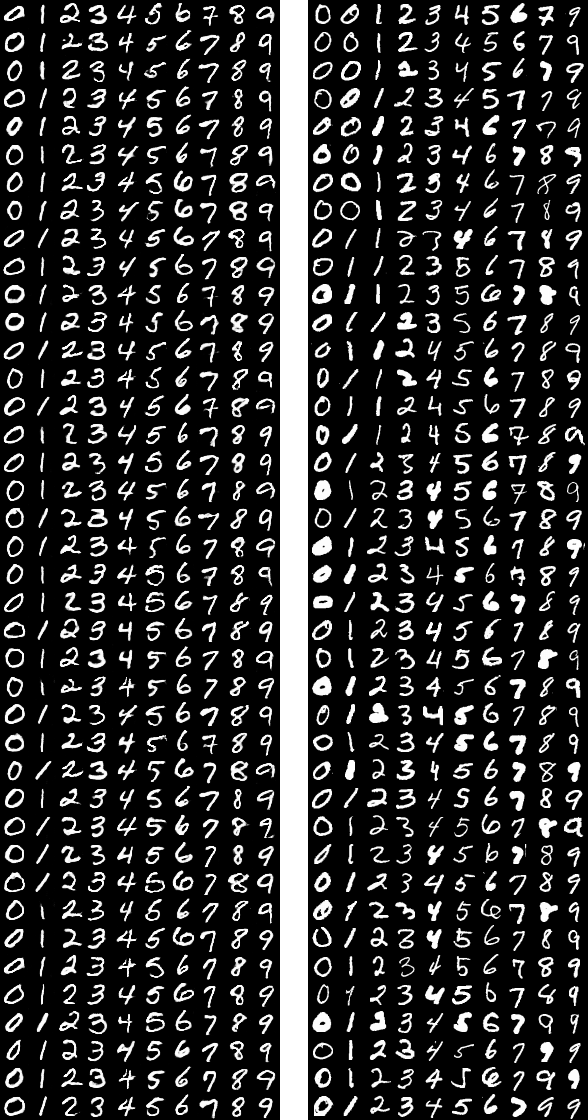 0 1 2 3 4 5 6 7 8 9 0 0 1 2 3 4 5 6 7 9
0 1 2 3 4 5 6 7 8 9 0 0 1 2 3 4 5 6 7 9
0 1 2 3 4 5 6 7 8 9 0 0 1 2 3 4 5 6 7 9
0 1 2 3 4 5 6 7 8 9 0 0 1 2 3 4 5 7 7 9
0 1 2 3 4 5 6 7 8 9 0 0 1 2 3 4 6 7 7 8
0 1 2 3 4 5 6 7 8 9 0 0 1 2 3 4 6 7 8 9
0 1 2 3 4 5 6 7 8 9 0 0 1 2 3 4 6 7 8 9
0 1 2 3 4 5 6 7 8 9 0 0 1 2 3 4 6 7 8 9
0 1 2 3 4 5 6 7 8 9 0 1 1 2 3 4 6 7 8 9
0 1 2 3 4 5 6 7 8 9 0 1 1 2 3 5 6 7 8 9
0 1 2 3 4 5 6 7 8 9 0 1 1 2 3 5 6 7 8 9
0 1 2 3 4 5 6 7 8 9 0 1 1 2 3 5 6 7 8 9
0 1 2 3 4 5 6 7 8 9 0 1 1 2 4 5 6 7 8 9
0 1 2 3 4 5 6 7 8 9 0 1 1 2 4 5 6 7 8 9
0 1 2 3 4 5 6 7 8 9 0 1 1 2 4 5 6 7 8 9
0 1 2 3 4 5 6 7 8 9 0 1 1 2 4 5 6 7 8 9
0 1 2 3 4 5 6 7 8 9 0 1 2 3 4 5 6 7 8 9
0 1 2 3 4 5 6 7 8 9 0 1 2 3 4 5 6 7 8 9
0 1 2 3 4 5 6 7 8 9 0 1 2 3 4 5 6 7 8 9
0 1 2 3 4 5 6 7 8 9 0 1 2 3 4 5 6 7 8 9
0 1 2 3 4 5 6 7 8 9 0 1 2 3 4 5 6 7 8 9
0 1 2 3 4 5 6 7 8 9 0 1 2 3 4 5 6 7 8 9
0 1 2 3 4 5 6 7 8 9 0 1 2 3 4 5 6 7 8 9
0 1 2 3 4 5 6 7 8 9 0 1 2 3 4 5 6 7 8 9
0 1 2 3 4 5 6 7 8 9 0 1 2 3 4 5 6 7 8 9
0 1 2 3 4 5 6 7 8 9 0 1 2 3 4 5 6 7 8 9
0 1 2 3 4 5 6 7 8 9 0 1 2 3 4 5 6 7 8 9
0 1 2 3 4 5 6 7 8 9 0 1 2 3 4 5 6 7 8 9
0 1 2 3 4 5 6 7 8 9 0 1 2 3 4 5 6 7 8 9
0 1 2 3 4 5 6 7 8 9 0 1 2 3 4 5 6 7 8 9
0 1 2 3 4 5 6 7 8 9 0 1 2 3 4 5 6 7 8 9
0 1 2 3 4 5 6 7 8 9 0 1 2 3 4 5 6 7 8 9
0 1 2 3 4 5 6 7 8 9 0 1 2 3 4 5 6 7 8 9
0 1 2 3 4 5 6 7 8 9 0 1 2 3 4 5 6 7 8 9
0 1 2 3 4 5 6 7 8 9 0 1 2 3 4 5 6 7 8 9
0 1 2 3 4 5 6 7 8 9 0 1 2 3 4 5 6 7 8 9
0 1 2 3 4 5 6 7 8 9 0 1 2 3 4 5 6 7 9 9
0 1 2 3 4 5 6 7 8 9 0 1 2 3 4 5 6 7 9 9
0 1 2 3 4 5 6 7 8 9 0 1 2 3 4 5 6 7 9 9
0 1 2 3 4 5 6 7 8 9 0 1 2 3 4 5 6 7 9 9